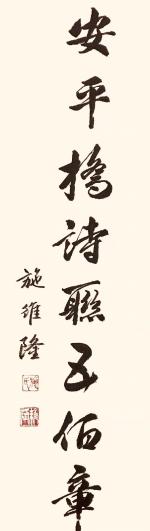 安平橋詩聯五佰章
施維隆